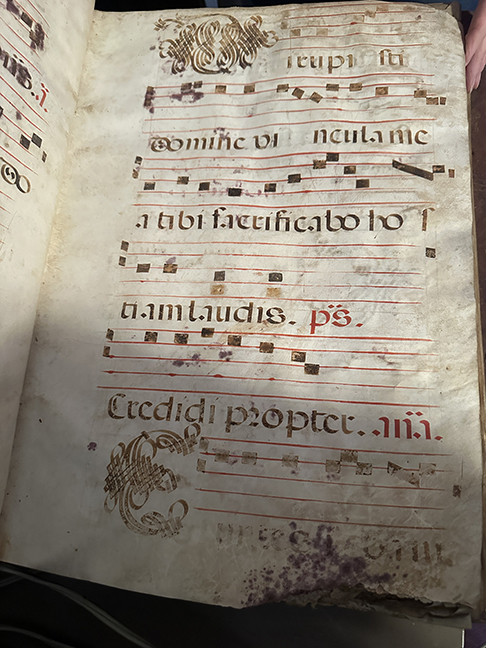 Dirupisti
Domine vincula me
a tibi sacrificabo hos
tiam laudis. ps.
Credidi propter. .iiii.